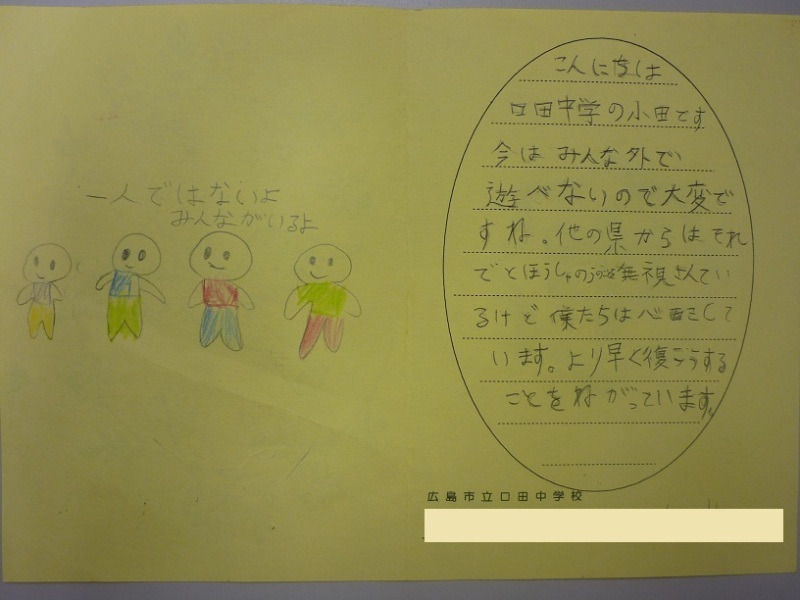 一人ではないよ
みんながいるよ
こんにちは
口田中学の小田です
今はみんな外で
遊べないので大変で
すね。他の県からはそれ
でとほうしゃのうの無視されてい
るけど僕たちは心配して
います。より早く復こうする
ことをねがっています。
広島市立口田中学校